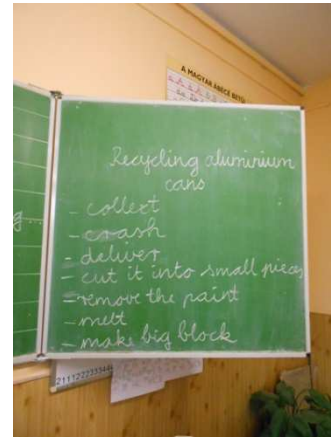 A MAGYAR ÁBÉCÉ BETŰI
Recycling aluminium
cans
- collect
- crash
- deliver
- cut it into small pieces
- remove the paint
- melt
- make big block
g